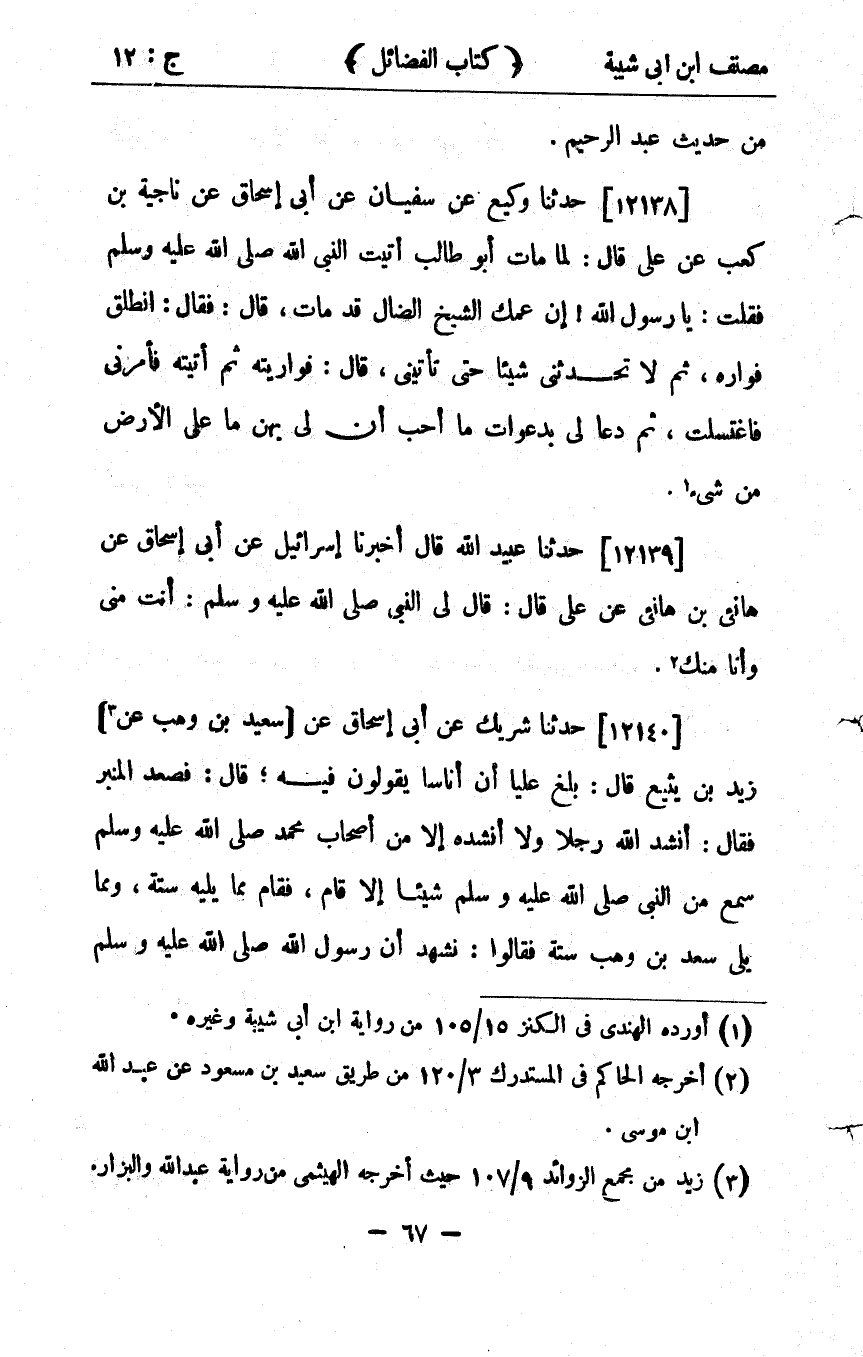 مصنف ابن ابى شيبة ﴿ كتاب الفضائل ﴾ ج : ١٢
من حديث عبد الرحيم .
[١٢١٣٨] حدثنا وكيع عن سفيان عن أبى إسحاق عن ناجية بن
كعب عن على قال : لما مات أبو طالب أتيت النبى صلى الله عليه وسلم
فقلت : يا رسول الله ! إن عمك الشيخ الضال قد مات ، قال : فقال : انطلق
فواره ، ثم لا تحدثنى شيئا حتى تأتينى ، قال : فواريته ثم أتيته فأمرنى
فاغتسلت ، ثم دعا لى بدعوات ما أحب أن لى بهن ما على الأرض
من شىء١ .
[١٢١٣٩] حدثنا عبيد الله قال أخبرنا إسرائيل عن أبى إسحاق عن
هانئ بن هانئ عن على قال : قال لى النبى صلى الله عليه و سلم : أنت منى
وأنا منك٢ .
[١٢١٤٠] حدثنا شريك عن أبى إسحاق عن [سعيد بن وهب عن٣]
زيد بن يثيع قال : بلغ عليا أن أناسا يقولون فيه ؛ قال : فصعد المنبر
فقال : أنشد الله رجلا ولا أنشده إلا من أصحاب محمد صلى الله عليه وسلم
سمع من النبى صلى الله عليه و سلم شيئا إلا قام ، فقام مما يليه ستة ، ومما
يلى سعد بن وهب ستة فقالوا : نشهد أن رسول الله صلى الله عليه و سلم
(١) أورده الهندى فى الكنز ١٠٥/١٥ من رواية ابن أبي شيبة وغيره .
(٢) أخرجه الحاكم فى المستدرك ١٢٠/٣ من طريق سعيد بن مسعود عن عبد الله
ابن موسى .
(٣) زيد من مجمع الزوائد ١٠٧/٩ حيث أخرجه الهيثمى من رواية عبدالله والبزار.
— ٦٧ —